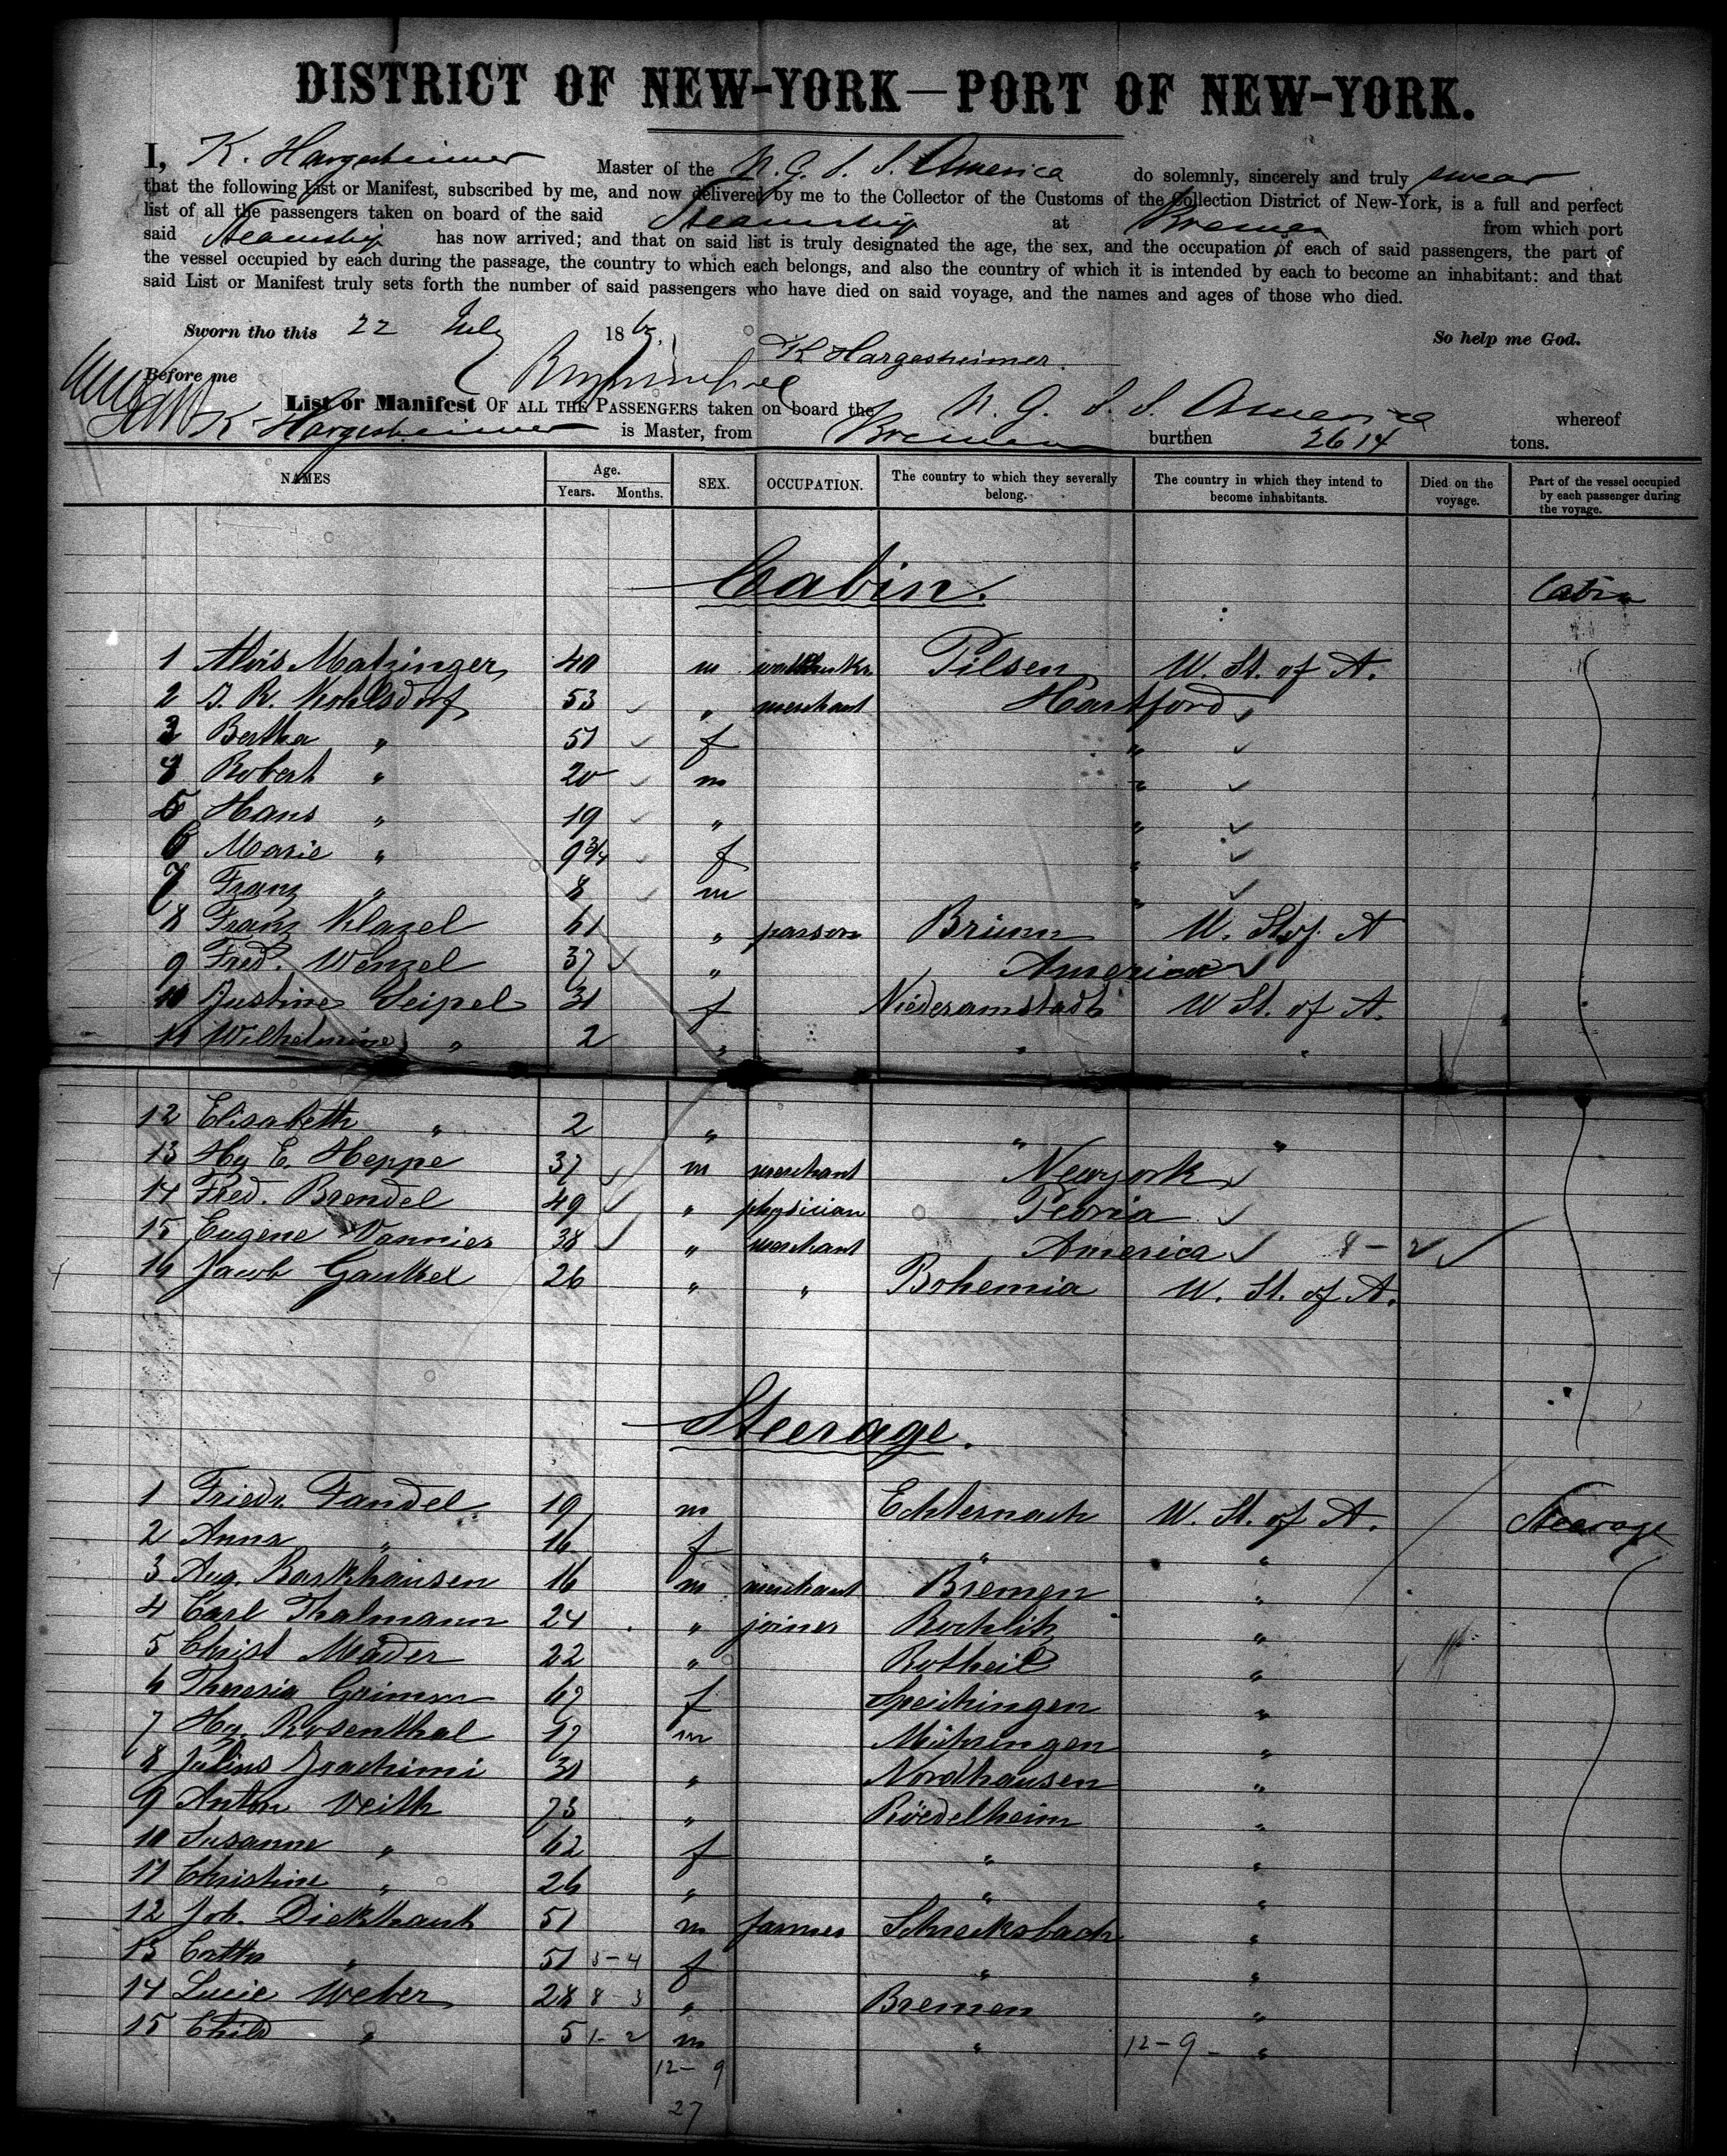 DISTRICT OF NEW-YORK—PORT OF NEW-YORK.
I, K. Hargesheimer Master of the N. G. S. S. America do solemnly, sincerely and truly swear
that the following List or Manifest, subscribed by me, and now delivered by me to the Collector of the Customs of the Collection District of New-York, is a full and perfect
list of all the passengers taken on board of the said Steamship at Bremen from which port
said Steamship has now arrived; and that on said list is truly designated the age, the sex, and the occupation of each of said passengers, the part of
the vessel occupied by each during the passage, the country to which each belongs, and also the country of which it is intended by each to become an inhabitant: and that
said List or Manifest truly sets forth the number of said passengers who have died on said voyage, and the names and ages of those who died.
Sworn tho this 22 July 186 So help me God.
K Hargesheimer.
Before me
List or Manifest OF ALL THE PASSENGERS taken on board the N. G. S. S. America whereof
K Hargesheimer is Master, from Bremen burthen 2614 tons.
NAMES Age. Years. Months. SEX. OCCUPATION. The country to which they severally belong. The country in which they intend to become inhabitants. Died on the voyage. Part of the vessel occupied by each passenger during the voyage.
Cabin. Cabin
1 Alois Matzinger 40 m Pilsen U. St. of A.
2 J. R. Kohlsdorf 53 " merchant Hartford
3 Bertha " 51 f "
4 Robert " 20 m "
5 Hans " 19 " "
6 Marie " 9 3/4 f "
7 Franz " 8 m "
8 Franz Klazel 61 " parson Brünn U. St. of A
9 Fred. Wenzel 37 " America
10 Justine Seipel 31 f Niederamstadt U St. of A.
11 Wilhelmine " 2 " " "
12 Elisabeth " 2 " " "
13 Hy E. Heppe 37 m merchant Newyork
14 Fred. Brendel 49 " physician Peoria
15 Eugene Vannier 38 " merchant America 8 - 2
16 Jacob Gaukel 26 " " Bohemia U. St. of A.
Steerage.
1 Friedr. Fandel 19 m Echternach U. St. of A. Steerage
2 Anna " 16 f " "
3 Aug. Barkhausen 16 m merchant Bremen "
4 Carl Thalmann 24 " joiner Rochlitz "
5 Christ Mäder 22 " Rotheil "
6 Theresia Grimm 67 f Speichingen "
7 Hy Rosenthal 17 m Mühringen "
8 Julius Joachimi 31 " Nordhausen "
9 Anton Veith 73 " Röedelheim "
10 Susanne " 62 f " "
11 Christine " 26 " " "
12 Joh. Dickhaut 51 m farmer Schrecksbach "
13 Cathr " 51 3-4 f " "
14 Lucie Weber 28 8-3 " Bremen "
15 Child " 5 1-2 m " 12-9- "
12-9
27